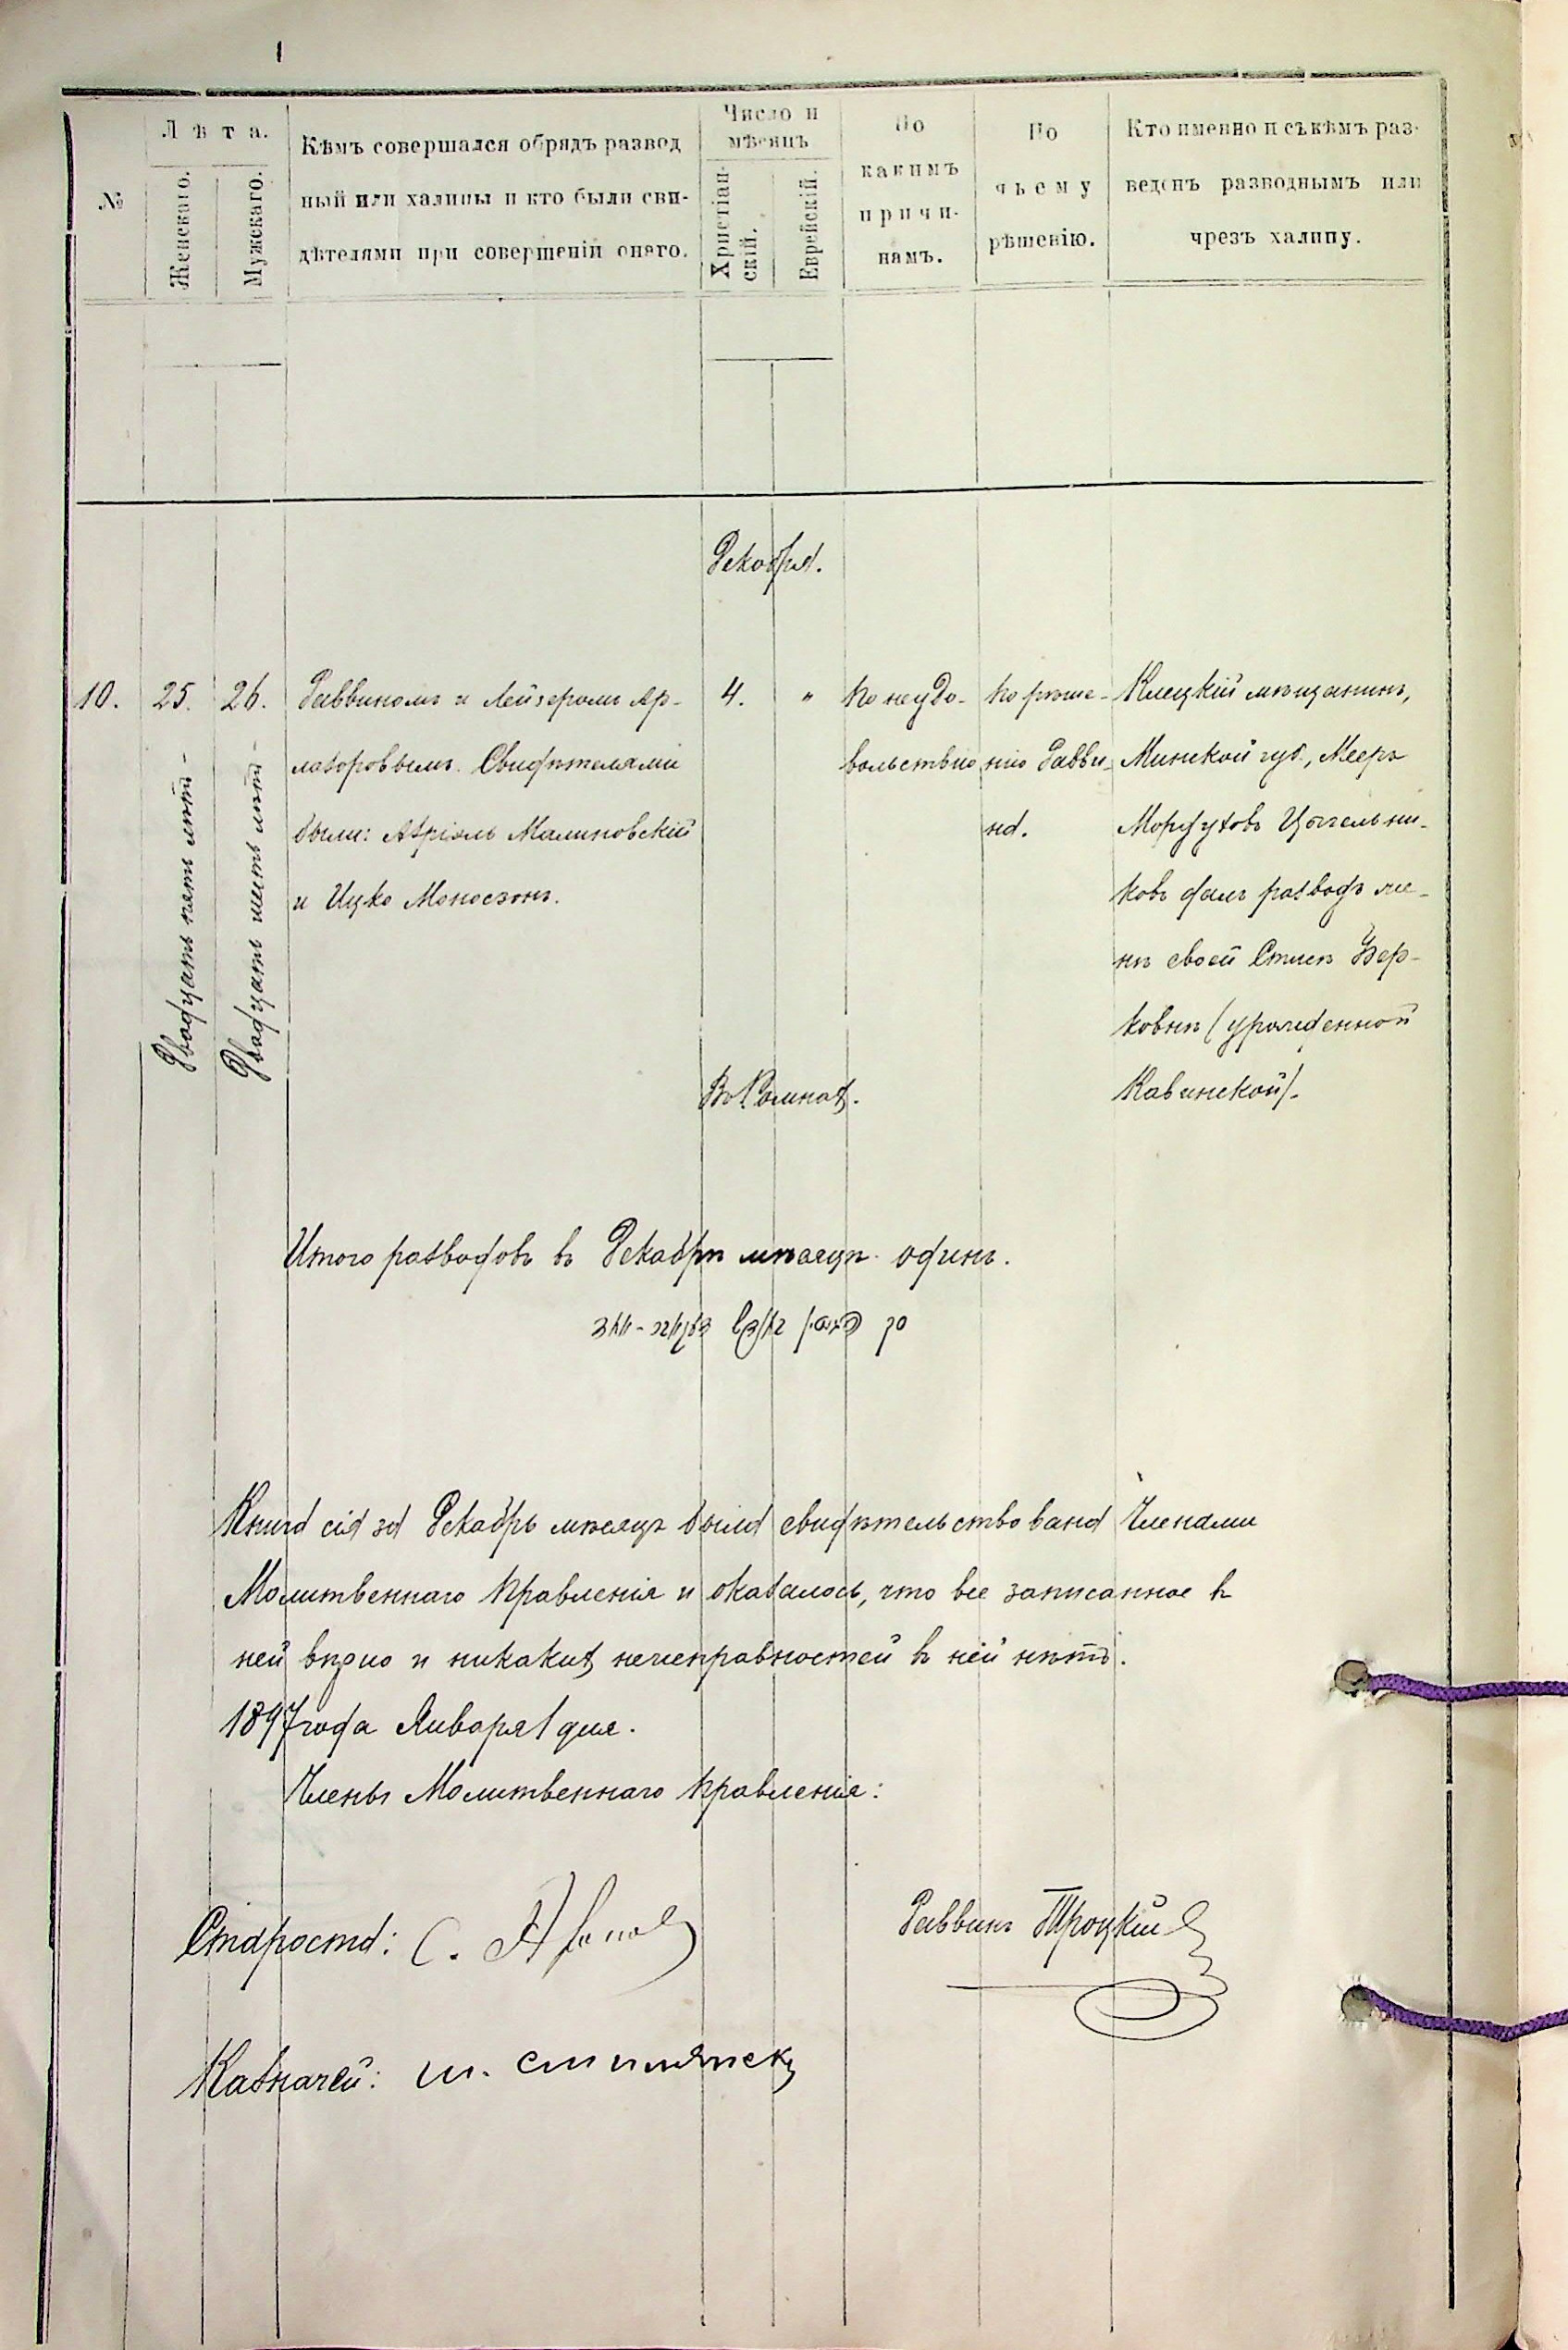 №
Лѣта.
Женскаго.
Мужскаго.
Кѣмъ совершался обрядъ развод
ный или халицы и кто были сви-
дѣтелями при совершеніи онаго.
Число и
мѣсяцъ
Христіан-
скій.
Еврейскій.
По
какимъ
причи-
намъ.
По
чьему
рѣшенію.
Кто именно и съ кѣмъ раз-
веденъ разводнымъ или
чрезъ халицу.
Декабря.
10.
25.
Двадцать пять лѣтъ -
26.
Двадцать шесть лѣтъ -
Раввиномъ и Лейзеромъ Ар-
лазоровымъ. Свидѣтелями
были: Азріэль Малиновскій
и Ицко Моносзонъ.
4.
"
По неудо-
вольствію
По рѣше-
нію Равви-
на.
Клецкій мѣщанинъ,
Минской губ., Мееръ
Мордуховъ Цыгельни-
ковъ далъ разводъ же-
нѣ своей Стисѣ Бер-
ковнѣ (урожденной
Кавинской).
Въ Ромнах.
Итого разводовъ въ Декабрѣ мѣсяцѣ одинъ.
Книга сія за Декабрь мѣсяцъ была свидѣтельствована Членами
Молитвеннаго Правленія и оказалось, что все записанное въ
ней вѣрно и никаких неисправностей въ ней нѣтъ.
1897 года Января 1 дня.
Члены Молитвеннаго Правленія:
Староста: С.
Раввинъ Троцкій
Казначей: Ш.